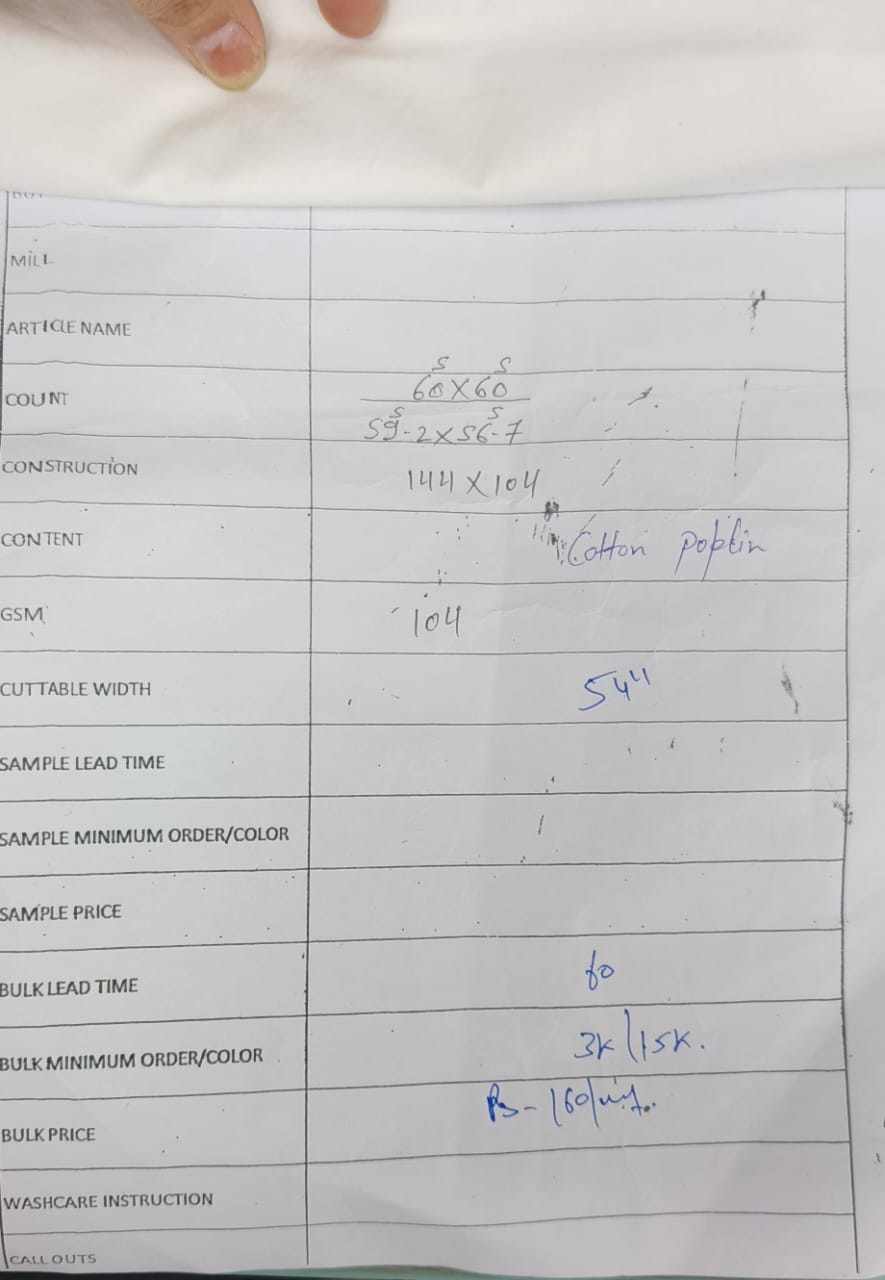 MILL
ARTICLE NAME
COUNT
60s X 60s
59s-2 X 56s-7
CONSTRUCTION
144 X 104
CONTENT
Cotton poplin
GSM
104
CUTTABLE WIDTH
54"
SAMPLE LEAD TIME
SAMPLE MINIMUM ORDER/COLOR
SAMPLE PRICE
BULK LEAD TIME
60
BULK MINIMUM ORDER/COLOR
3K/15K.
BULK PRICE
Rs - 160/
WASHCARE INSTRUCTION
CALL OUTS